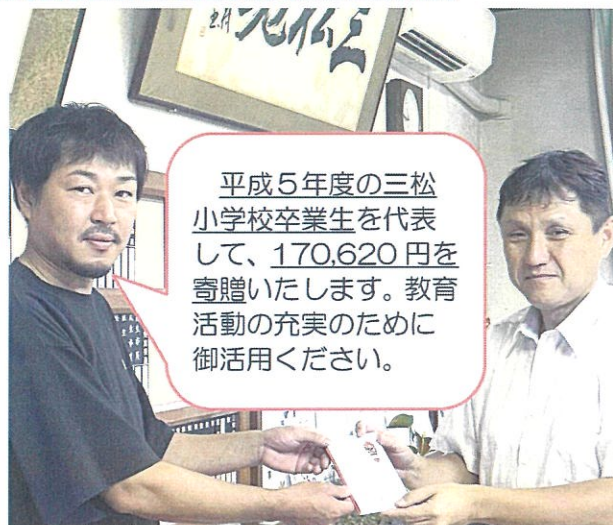 平成５年度の三松
小学校卒業生を代表
して、170,620 円を
寄贈いたします。教育
活動の充実のために
御活用ください。